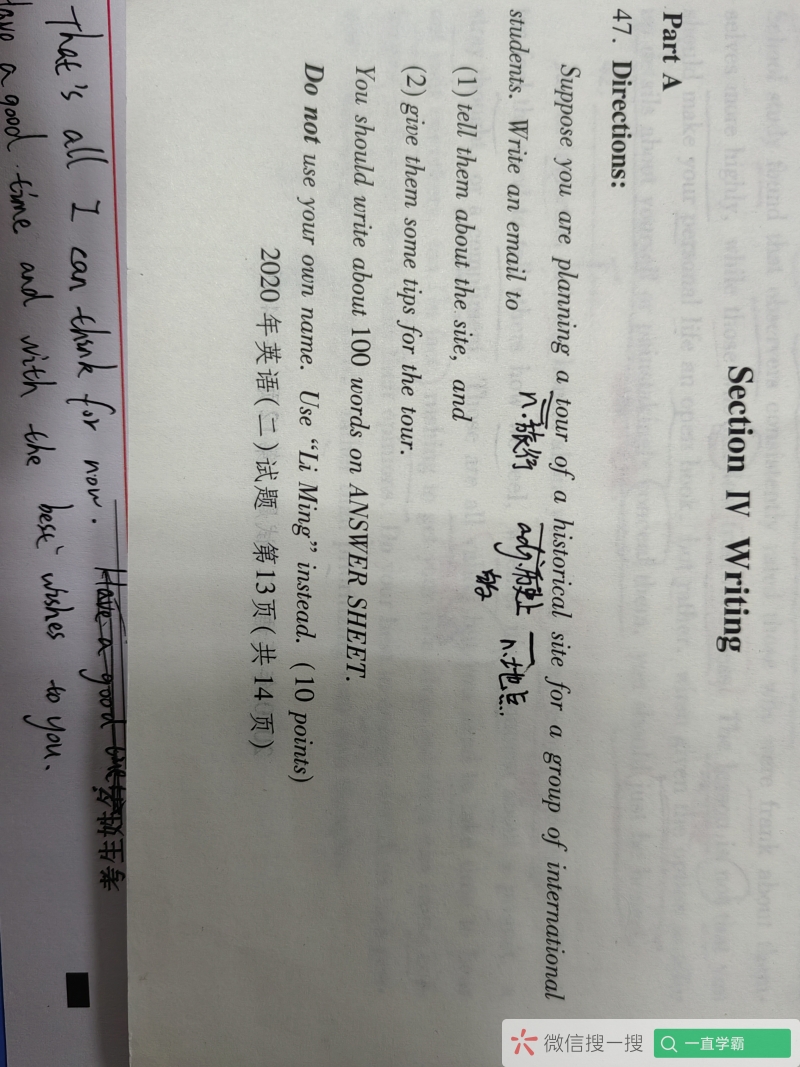 Section IV Writing
Part A
47. Directions:
Suppose you are planning a tour of a historical site for a group of international
n.旅行
adj.历史上
的
n.地点.
students. Write an email to
(1) tell them about the site, and
(2) give them some tips for the tour.
You should write about 100 words on ANSWER SHEET.
Do not use your own name. Use “Li Ming” instead. (10 points)
2020 年英语(二)试题 第13页(共14页)
That's all I can think for now. Have a good
have a good time and with the best wishes to you.
微信搜一搜
一直学霸